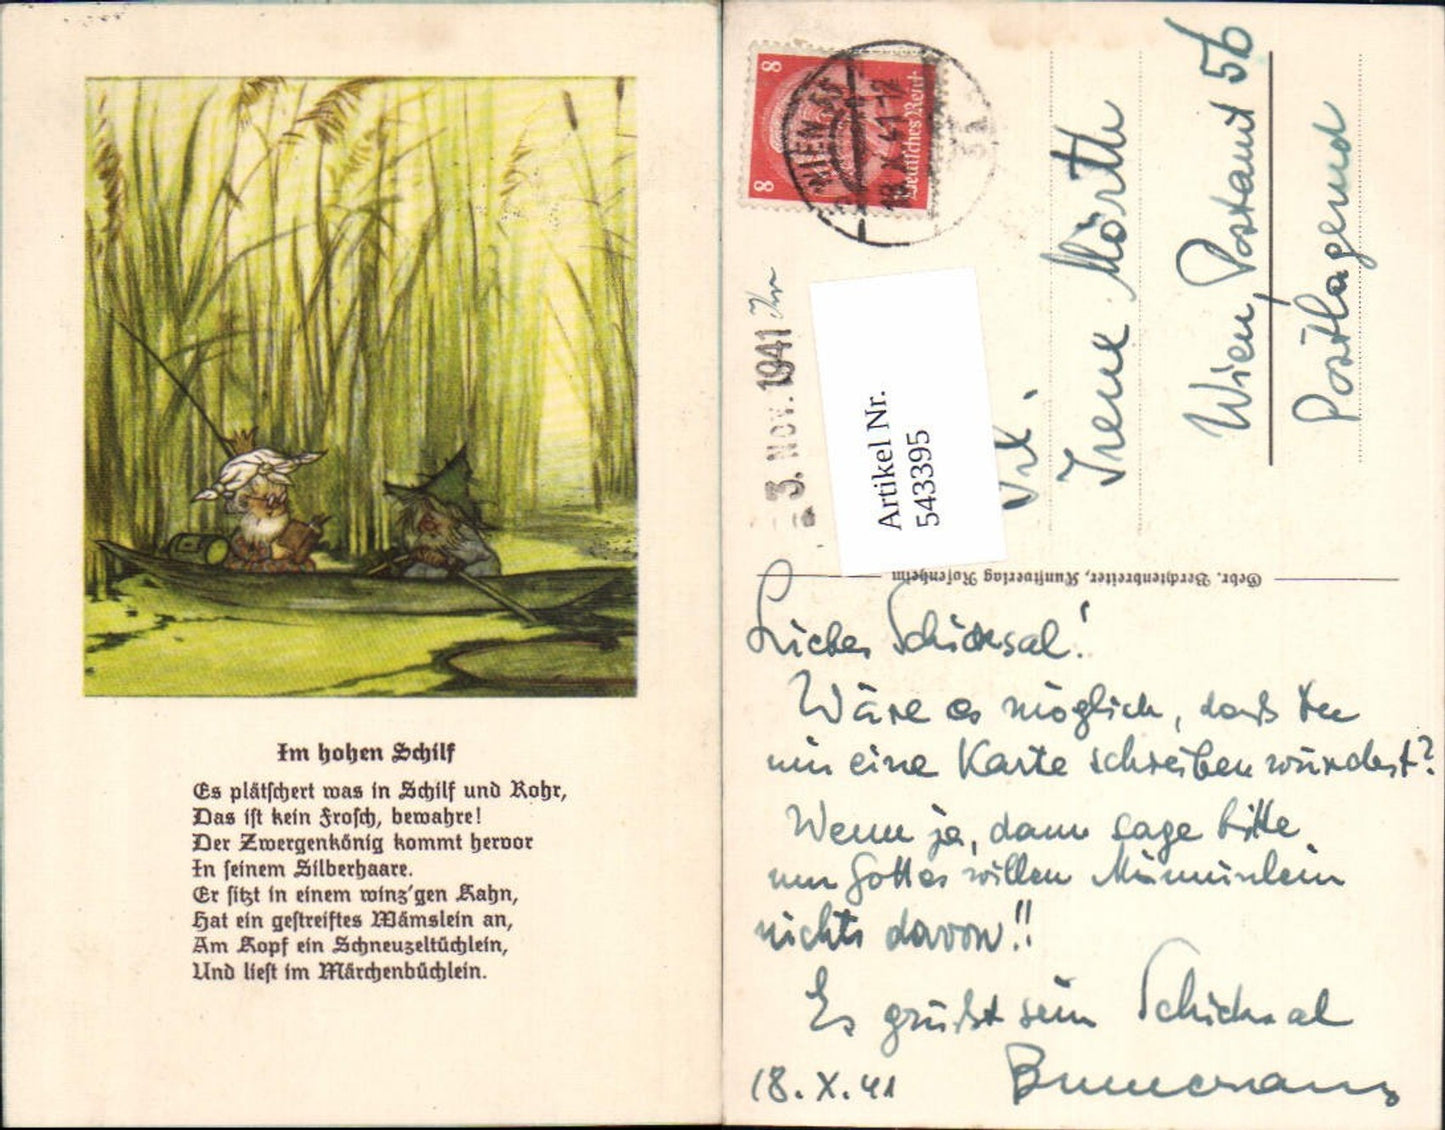 Im hohen Schilf
Es plätschert was in Schilf und Rohr,
Das ist kein Frosch, bewahre!
Der Zwergenkönig kommt hervor
In seinem Silberhaare.
Er sitzt in einem winz'gen Kahn,
Hat ein gestreiftes Wämslein an,
Am Kopf ein Schneuzeltüchlein,
Und liest im Märchenbüchlein.
8 8
Deutsches Reich
WIEN
18.X.41-12
3. Nov. 1941
Artikel Nr.
543395
Frl.
Irene Mörth
Wien, Postamt 56
Postlagernd
Gebr. Berchtenbreiter, Kunstverlag Rosenheim
Liebes Schicksal!
Wäre es möglich, daß Du
mir eine Karte schreiben würdest?
Wenn ja, dann sage bitte
um Gottes willen
nichts davon!!
Es grüßt sein Schicksal
18.X.41